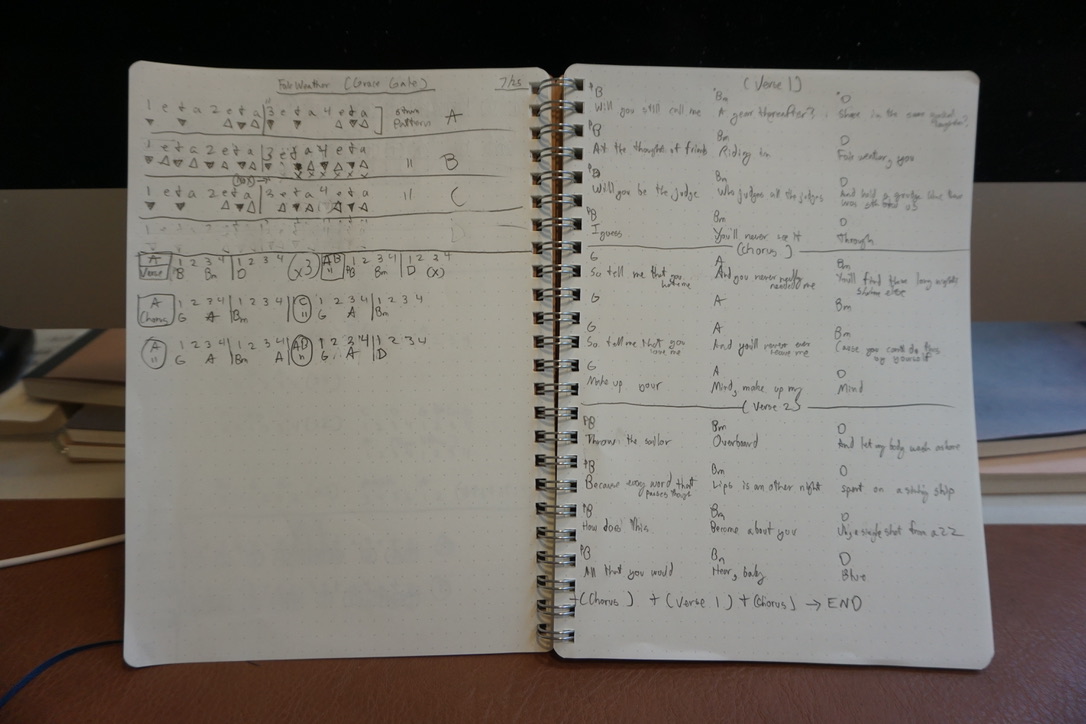 Fair Weather (Gracie Gate) 7/25
1 e & a 2 e & a 3 e & a 4 e & a Strum Pattern A
1 e & a 2 e & a 3 e & a 4 e & a " B
1 e & a 2 e & a 3 e & a 4 e & a " C
A Verse 1 2 3 4 1 2 3 4 (x3) 1 2 3 4 1 2 3 4
B Bm D B Bm D (x)
A Chorus 1 2 3 4 1 2 3 4 C " 1 2 3 4 1 2 3 4
G A Bm G A Bm
A " 1 2 3 4 1 2 3 4 1 2 3 4 1 2 3 4
G A Bm A G A D
(Verse 1)
B Bm D
Will you still call me A year thereafter? Share in the same
B Bm D
At the thoughts of friends Riding in Fair you
B Bm D
Will you be the judge Who judges all the judges And hold a
was us
B Bm D
I guess You'll never see it Through
(Chorus)
G A Bm
So tell me that you And you never really needed me You'll find them long nights
else
G A Bm
G A Bm
So tell me that you love me And you'll never ever leave me Cause you can't do this by yourself
G A D
Make up your Mind, make up my Mind
(Verse 2)
B Bm D
Throw the sailor Overboard And let my body wash ashore
B Bm D
Because every word that passes Lips is an other night spent on a ship
B Bm D
How does this Become about you single shot from a 22
B Bm D
All that you would Hear, baby Blue
+ (Chorus) + (Verse 1) + (Chorus) → END